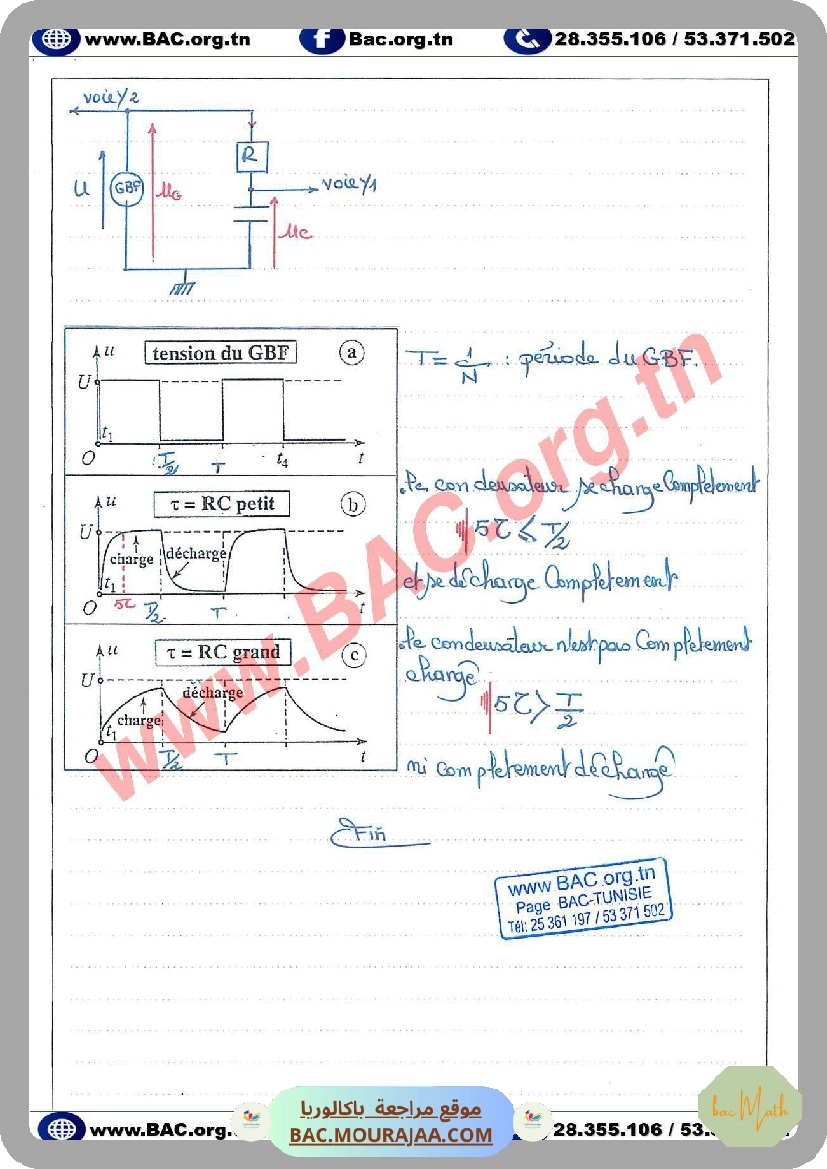 www.BAC.org.tn Bac.org.tn 28.355.106 / 53.371.502
voie Y2
R
U GBF uG voie Y1
uc
u tension du GBF a
U
t1
O T/2 T t4 t
T = 1/N : période du GBF.
u τ = RC petit b
U
charge décharge
t1
O 5τ T/2 T t
.Le condensateur se charge Complètement
5τ ≤ T/2
et se décharge Complètement
u τ = RC grand c
U
décharge
charge
t1
O T/2 T t
.Le condensateur n'est pas Complètement
chargé
5τ > T/2
ni complètement déchargé
Fin
www.BAC.org.tn
www BAC.org.tn
Page BAC-TUNISIE
Tél: 25 361 197 / 53 371 502
bac Math
موقع مراجعة باكالوريا
BAC.MOURAJAA.COM
www.BAC.org. 28.355.106 / 53.